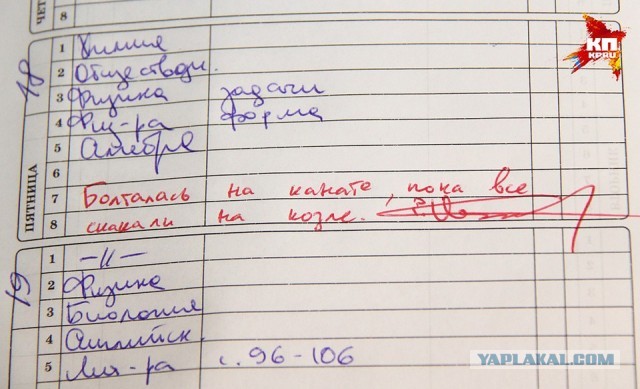 ЧЕТ
8
КП
KP.RU
18
ПЯТНИЦА
1 Химия
2 Обществозн.
3 Физика задачи
4 Физ-ра форма
5 Алгебра
6
7 Болталась на канате, пока все
8 скакали на козле.
19
1 —//—
2 Физика
3 Биология
4 Английск.
5 Лит-ра с. 96-106
YAPLAKAL.COM